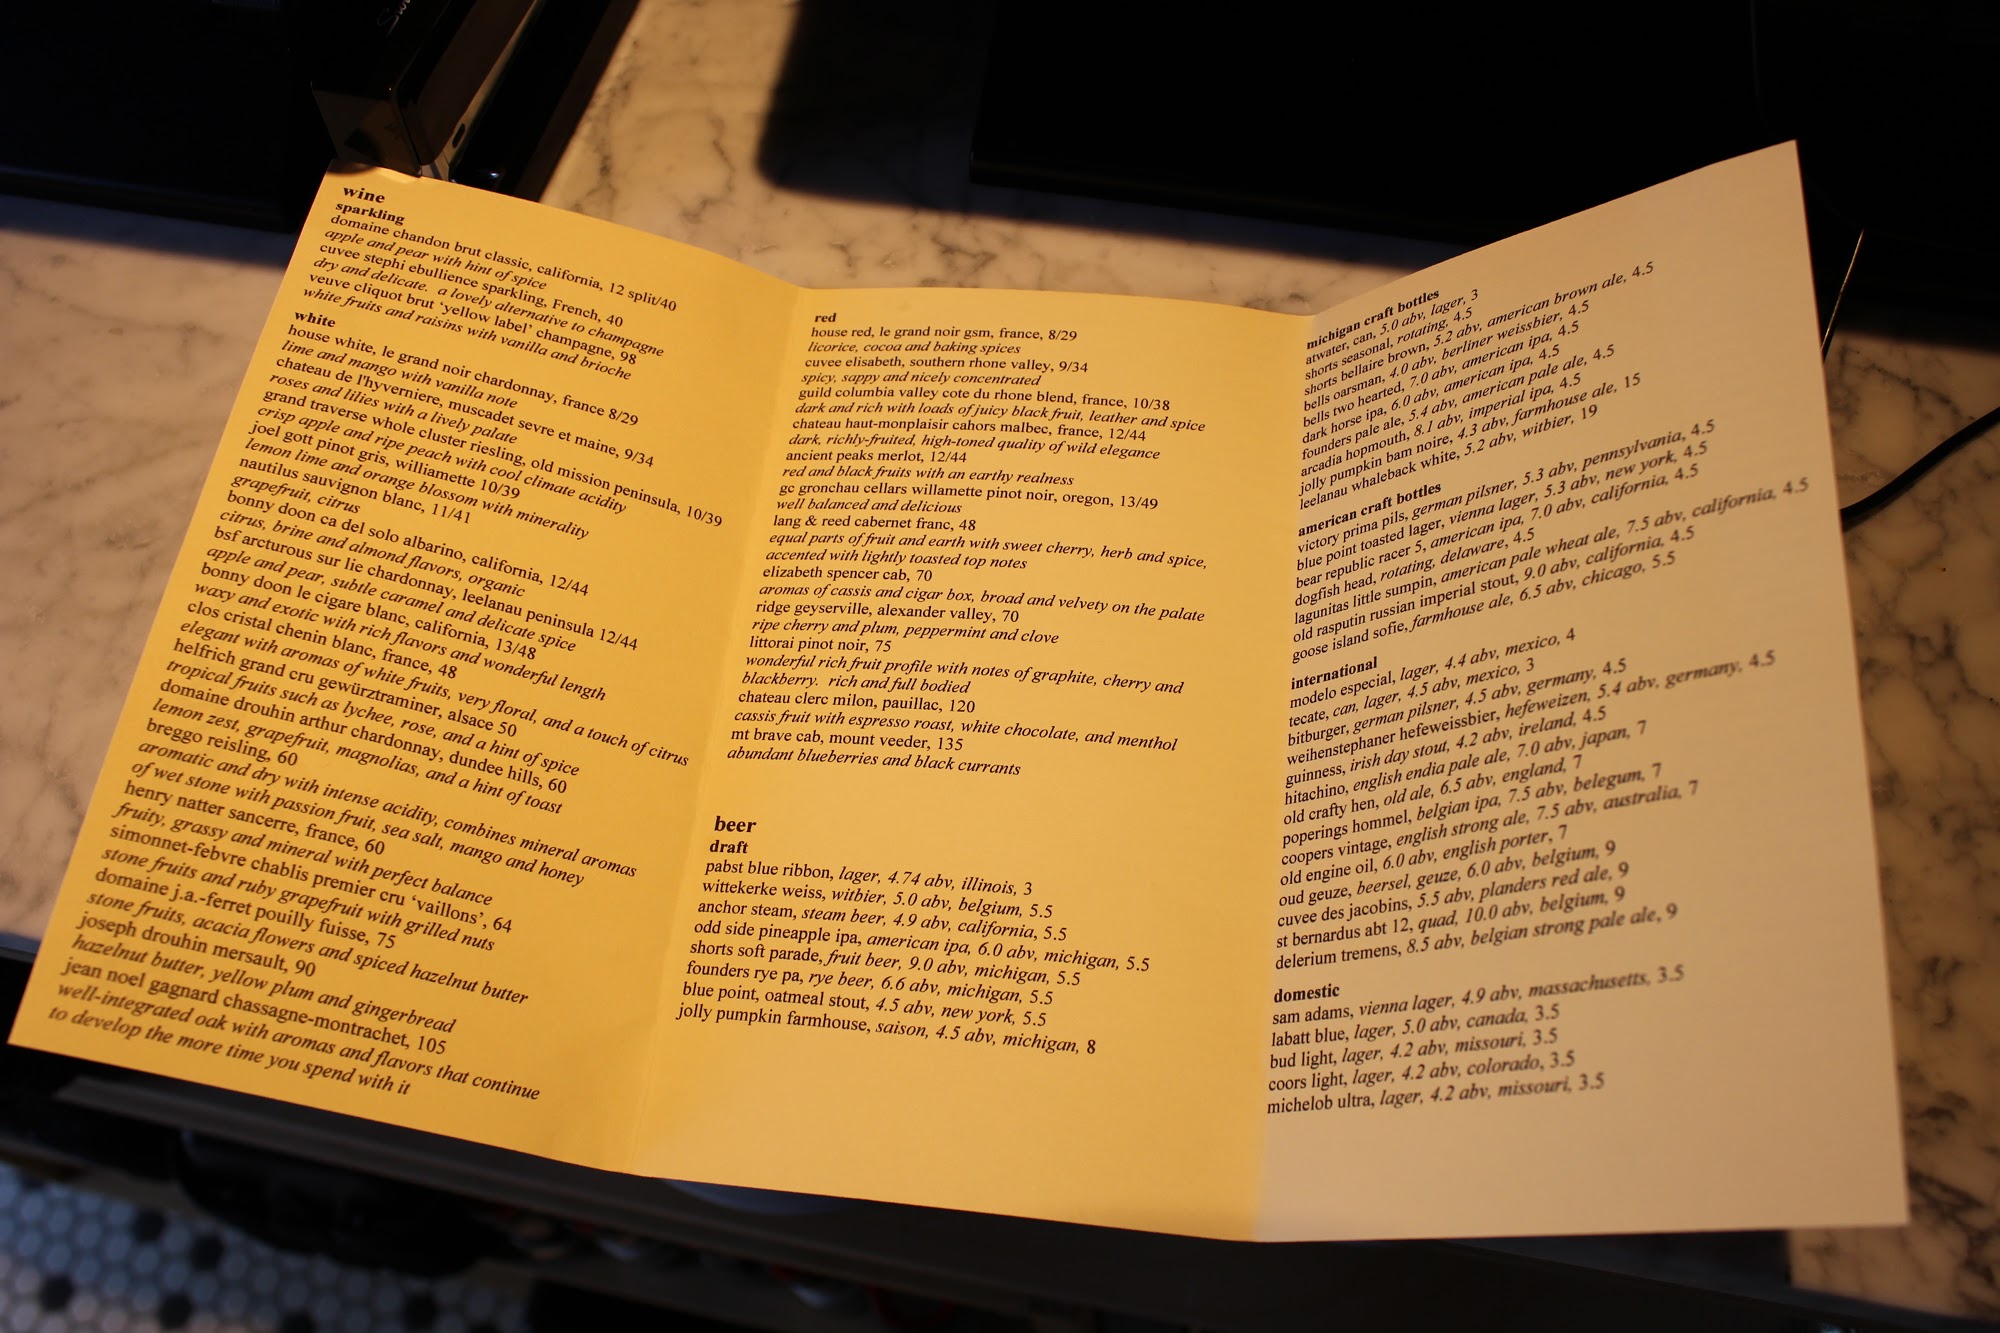 wine
sparkling
domaine chandon brut classic, california, 12 split/40
apple and pear with hint of spice
cuvee stephi ebullience sparkling, French, 40
dry and delicate. a lovely alternative to champagne
veuve cliquot brut 'yellow label' champagne, 98
white fruits and raisins with vanilla and brioche
white
house white, le grand noir chardonnay, france 8/29
lime and mango with vanilla note
chateau de l'hyverniere, muscadet sevre et maine, 9/34
roses and lilies with a lively palate
grand traverse whole cluster riesling, old mission peninsula, 10/39
crisp apple and ripe peach with cool climate acidity
joel gott pinot gris, williamette 10/39
lemon lime and orange blossom with minerality
nautilus sauvignon blanc, 11/41
grapefruit, citrus
bonny doon ca del solo albarino, california, 12/44
citrus, brine and almond flavors, organic
bsf arcturous sur lie chardonnay, leelanau peninsula 12/44
apple and pear, subtle caramel and delicate spice
bonny doon le cigare blanc, california, 13/48
waxy and exotic with rich flavors and wonderful length
clos cristal chenin blanc, france, 48
elegant with aromas of white fruits, very floral, and a touch of citrus
helfrich grand cru gewürztraminer, alsace 50
tropical fruits such as lychee, rose, and a hint of spice
domaine drouhin arthur chardonnay, dundee hills, 60
lemon zest, grapefruit, magnolias, and a hint of toast
breggo reisling, 60
aromatic and dry with intense acidity, combines mineral aromas
of wet stone with passion fruit, sea salt, mango and honey
henry natter sancerre, france, 60
fruity, grassy and mineral with perfect balance
simonnet-febvre chablis premier cru 'vaillons', 64
stone fruits and ruby grapefruit with grilled nuts
domaine j.a.-ferret pouilly fuisse, 75
stone fruits, acacia flowers and spiced hazelnut butter
joseph drouhin mersault, 90
hazelnut butter, yellow plum and gingerbread
jean noel gagnard chassagne-montrachet, 105
well-integrated oak with aromas and flavors that continue
to develop the more time you spend with it
red
house red, le grand noir gsm, france, 8/29
licorice, cocoa and baking spices
cuvee elisabeth, southern rhone valley, 9/34
spicy, sappy and nicely concentrated
guild columbia valley cote du rhone blend, france, 10/38
dark and rich with loads of juicy black fruit, leather and spice
chateau haut-monplaisir cahors malbec, france, 12/44
dark, richly-fruited, high-toned quality of wild elegance
ancient peaks merlot, 12/44
red and black fruits with an earthy realness
gc gronchau cellars willamette pinot noir, oregon, 13/49
well balanced and delicious
lang & reed cabernet franc, 48
equal parts of fruit and earth with sweet cherry, herb and spice,
accented with lightly toasted top notes
elizabeth spencer cab, 70
aromas of cassis and cigar box, broad and velvety on the palate
ridge geyserville, alexander valley, 70
ripe cherry and plum, peppermint and clove
littorai pinot noir, 75
wonderful rich fruit profile with notes of graphite, cherry and
blackberry. rich and full bodied
chateau clerc milon, pauillac, 120
cassis fruit with espresso roast, white chocolate, and menthol
mt brave cab, mount veeder, 135
abundant blueberries and black currants
beer
draft
pabst blue ribbon, lager, 4.74 abv, illinois, 3
wittekerke weiss, witbier, 5.0 abv, belgium, 5.5
anchor steam, steam beer, 4.9 abv, california, 5.5
odd side pineapple ipa, american ipa, 6.0 abv, michigan, 5.5
shorts soft parade, fruit beer, 9.0 abv, michigan, 5.5
founders rye pa, rye beer, 6.6 abv, michigan, 5.5
blue point, oatmeal stout, 4.5 abv, new york, 5.5
jolly pumpkin farmhouse, saison, 4.5 abv, michigan, 8
michigan craft bottles
atwater, can, 5.0 abv, lager, 3
shorts seasonal, rotating, 4.5
shorts bellaire brown, 5.2 abv, american brown ale, 4.5
bells oarsman, 4.0 abv, berliner weissbier, 4.5
bells two hearted, 7.0 abv, american ipa, 4.5
dark horse ipa, 6.0 abv, american ipa, 4.5
founders pale ale, 5.4 abv, american pale ale, 4.5
arcadia hopmouth, 8.1 abv, imperial ipa, 4.5
jolly pumpkin bam noire, 4.3 abv, farmhouse ale, 15
leelanau whaleback white, 5.2 abv, witbier, 19
american craft bottles
victory prima pils, german pilsner, 5.3 abv, pennsylvania, 4.5
blue point toasted lager, vienna lager, 5.3 abv, new york, 4.5
bear republic racer 5, american ipa, 7.0 abv, california, 4.5
dogfish head, rotating, delaware, 4.5
lagunitas little sumpin, american pale wheat ale, 7.5 abv, california, 4.5
old rasputin russian imperial stout, 9.0 abv, california, 4.5
goose island sofie, farmhouse ale, 6.5 abv, chicago, 5.5
international
modelo especial, lager, 4.4 abv, mexico, 4
tecate, can, lager, 4.5 abv, mexico, 3
bitburger, german pilsner, 4.5 abv, germany, 4.5
weihenstephaner hefeweissbier, hefeweizen, 5.4 abv, germany, 4.5
guinness, irish day stout, 4.2 abv, ireland, 4.5
hitachino, english endia pale ale, 7.0 abv, japan, 7
old crafty hen, old ale, 6.5 abv, england, 7
poperings hommel, belgian ipa, 7.5 abv, belegum, 7
coopers vintage, english strong ale, 7.5 abv, australia, 7
old engine oil, 6.0 abv, english porter, 7
oud geuze, beersel, geuze, 6.0 abv, belgium, 9
cuvee des jacobins, 5.5 abv, planders red ale, 9
st bernardus abt 12, quad, 10.0 abv, belgium, 9
delerium tremens, 8.5 abv, belgian strong pale ale, 9
domestic
sam adams, vienna lager, 4.9 abv, massachusetts, 3.5
labatt blue, lager, 5.0 abv, canada, 3.5
bud light, lager, 4.2 abv, missouri, 3.5
coors light, lager, 4.2 abv, colorado, 3.5
michelob ultra, lager, 4.2 abv, missouri, 3.5